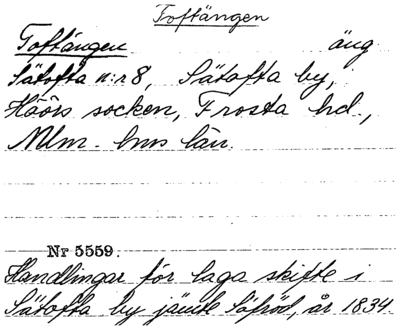 Toftängen
Toftängen äng
Sätofta n:r 8, Sätofta by,
Höörs socken, Frosta hd.,
Mlm. hus län.
Nr 5559.
Handlingar för laga skifte i
Sätofta by jämte Sjöröd, år 1834.